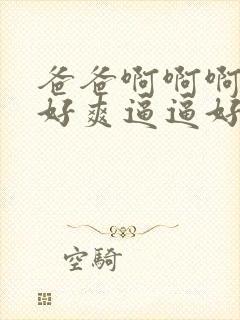 爸爸啊啊啊
好爽逼逼好
空騎